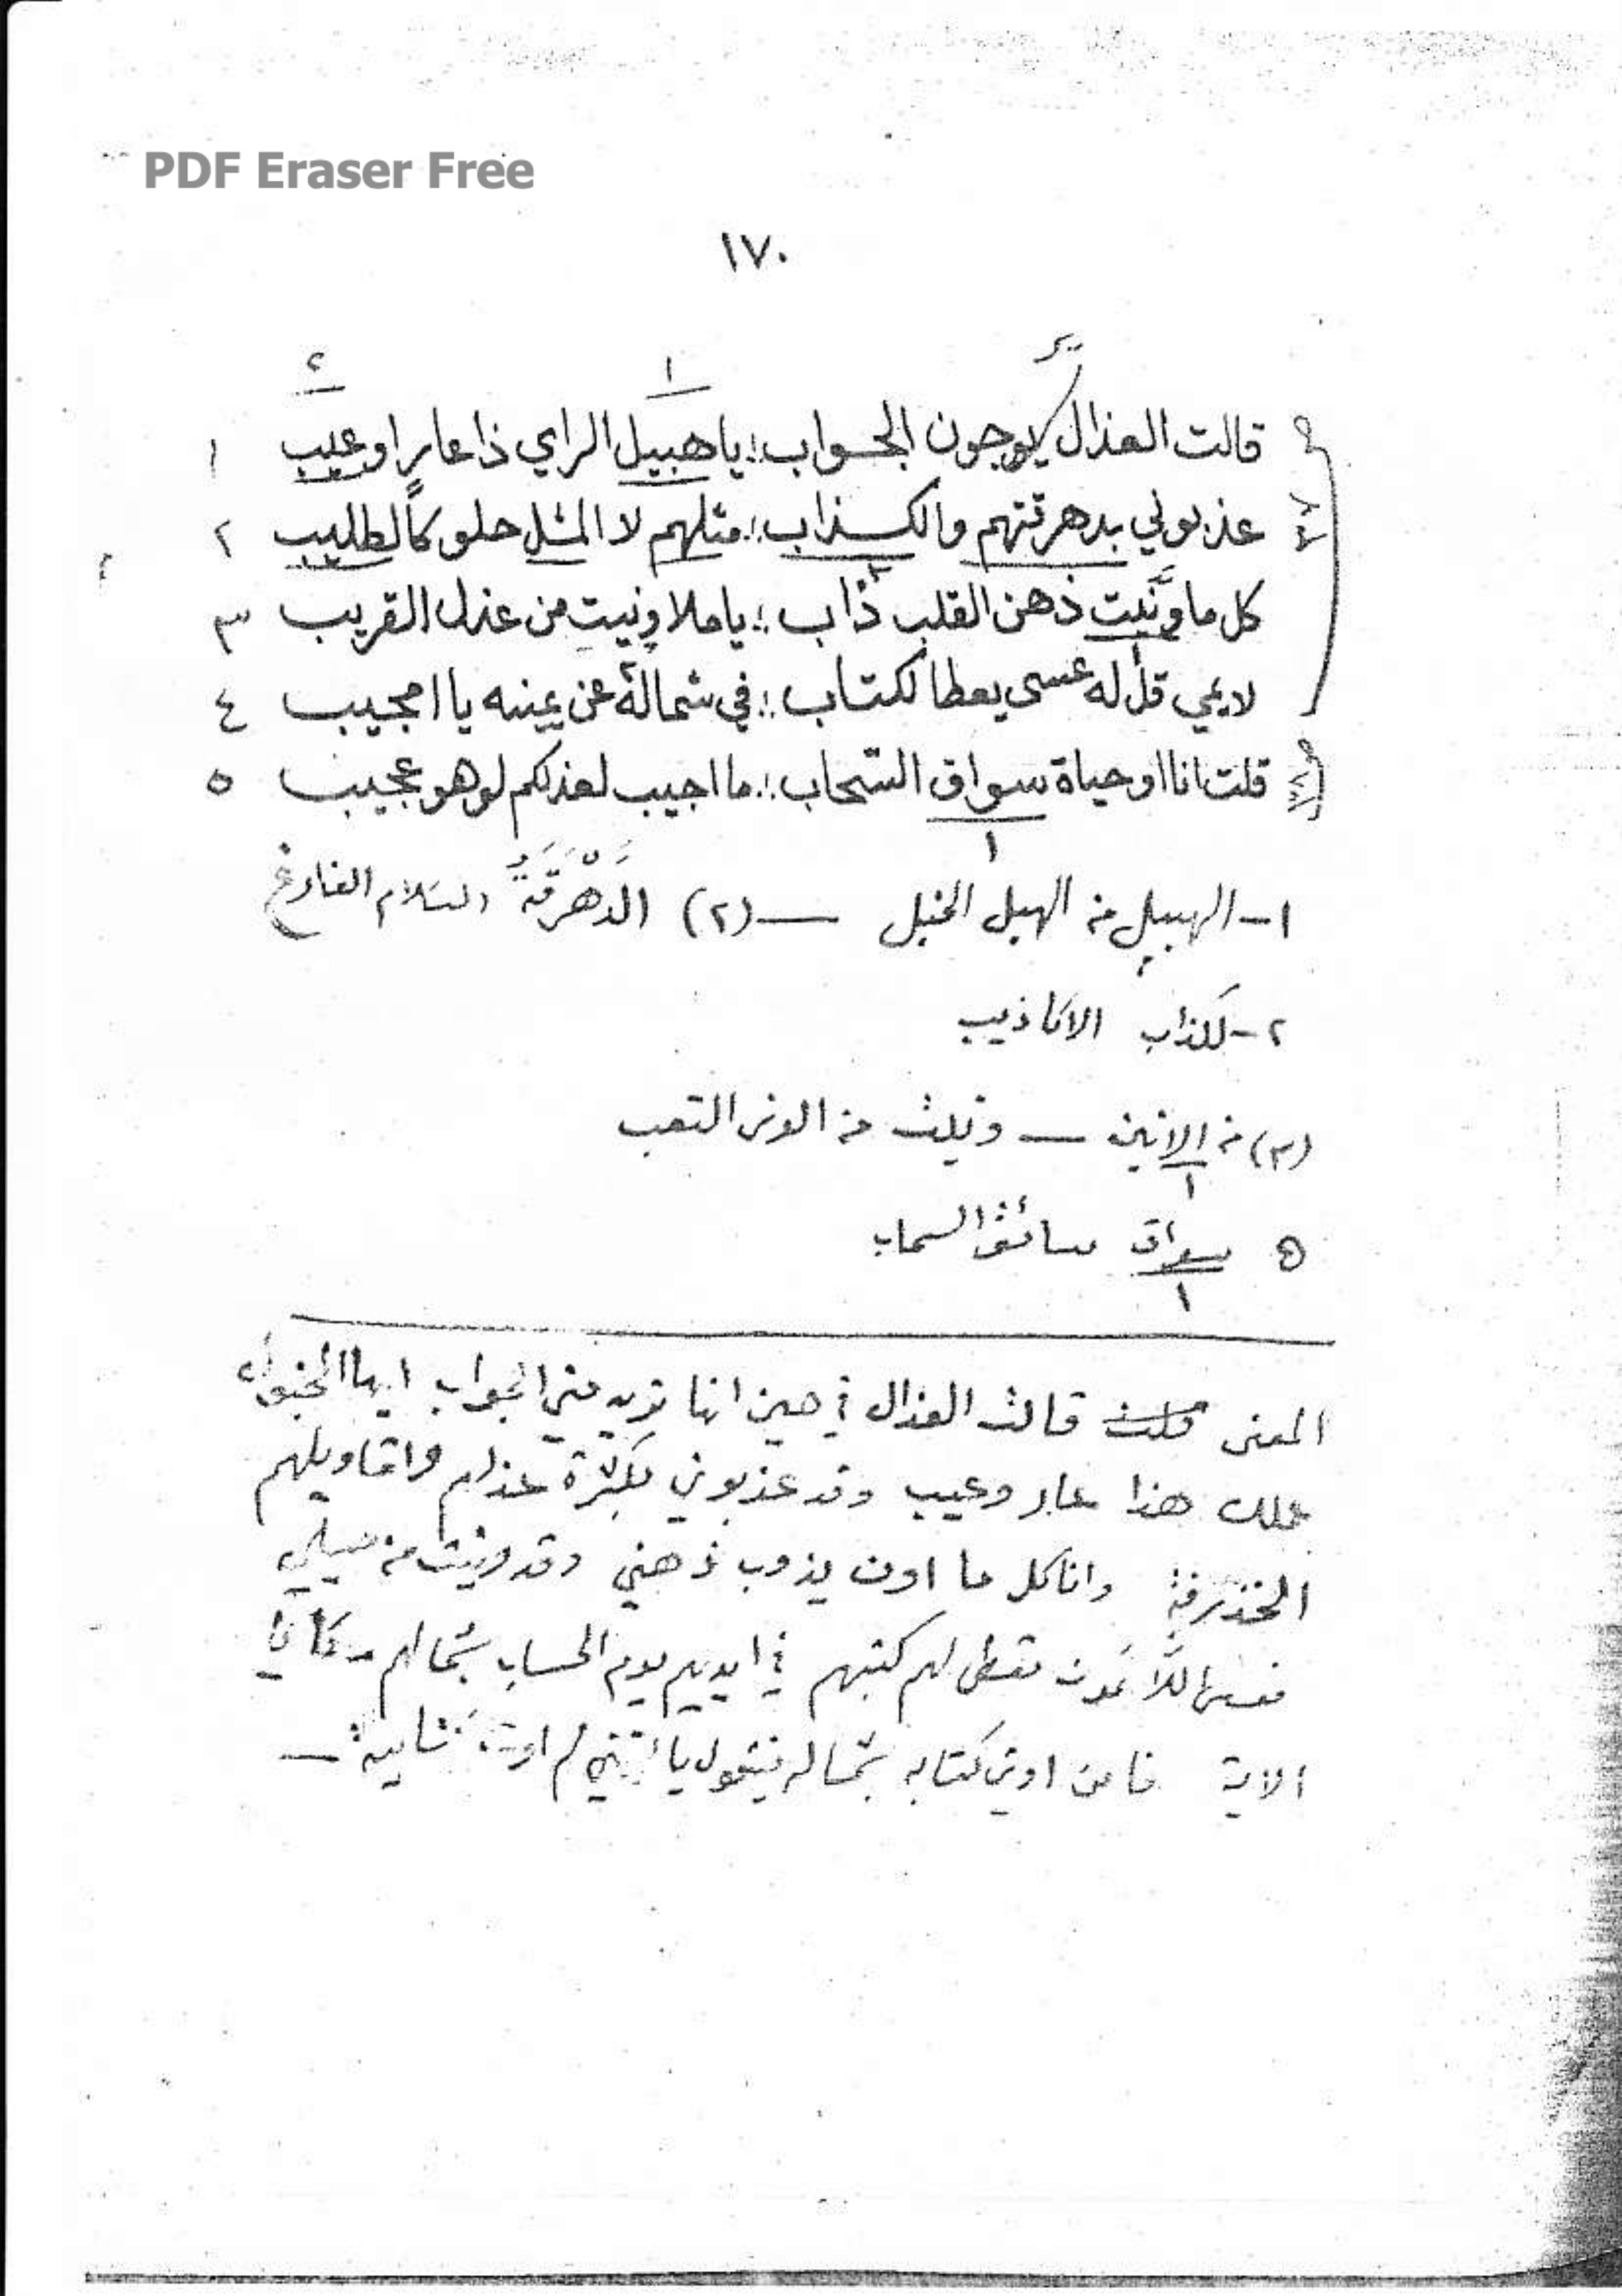 PDF Eraser Free
١٧٠
قالت العذال يوجون الجواب ؛؛ يا هبيل الراي ذا عار او عيب ١
عذبولي بدهرقتهم والكذاب ؛؛ مثلهم لا المثل حلو كالطليب ٢
كل ما ونّيت ذهن القلب ذاب ؛؛ يا ملا ونيت من عذل القريب ٣
لايمي قل له عسى يعطا لكتاب ؛؛ في شماله عن يمينه يا امجيب ٤
قلت انا او حياة سواق السحاب ؛؛ ما اجيب لعذلكم لو هو عجيب ٥
١- الهبيل من الهبل الخبل — (٢) الدَهْرَقَةُ الكلام الفارغ
٢- لكذاب الاكاذيب
(٣) من الانين — ونيت من الونى التعب
٥ سواق سائق السحاب
المعنى قالت العذال في حين انها تريد مني الجواب ايها المخبول
عملك هذا عار وعيب وقد عذبوني بكثرة عذلهم واقاويلهم
وانا كل ما اون يذوب ذهني وقد ونيت من
تعطى لهم كتبهم في ايديهم يوم الحساب بشمالهم
الاية فاما من اوتي كتابه بشماله فيقول يا ليتني لم اوت كتابيه —